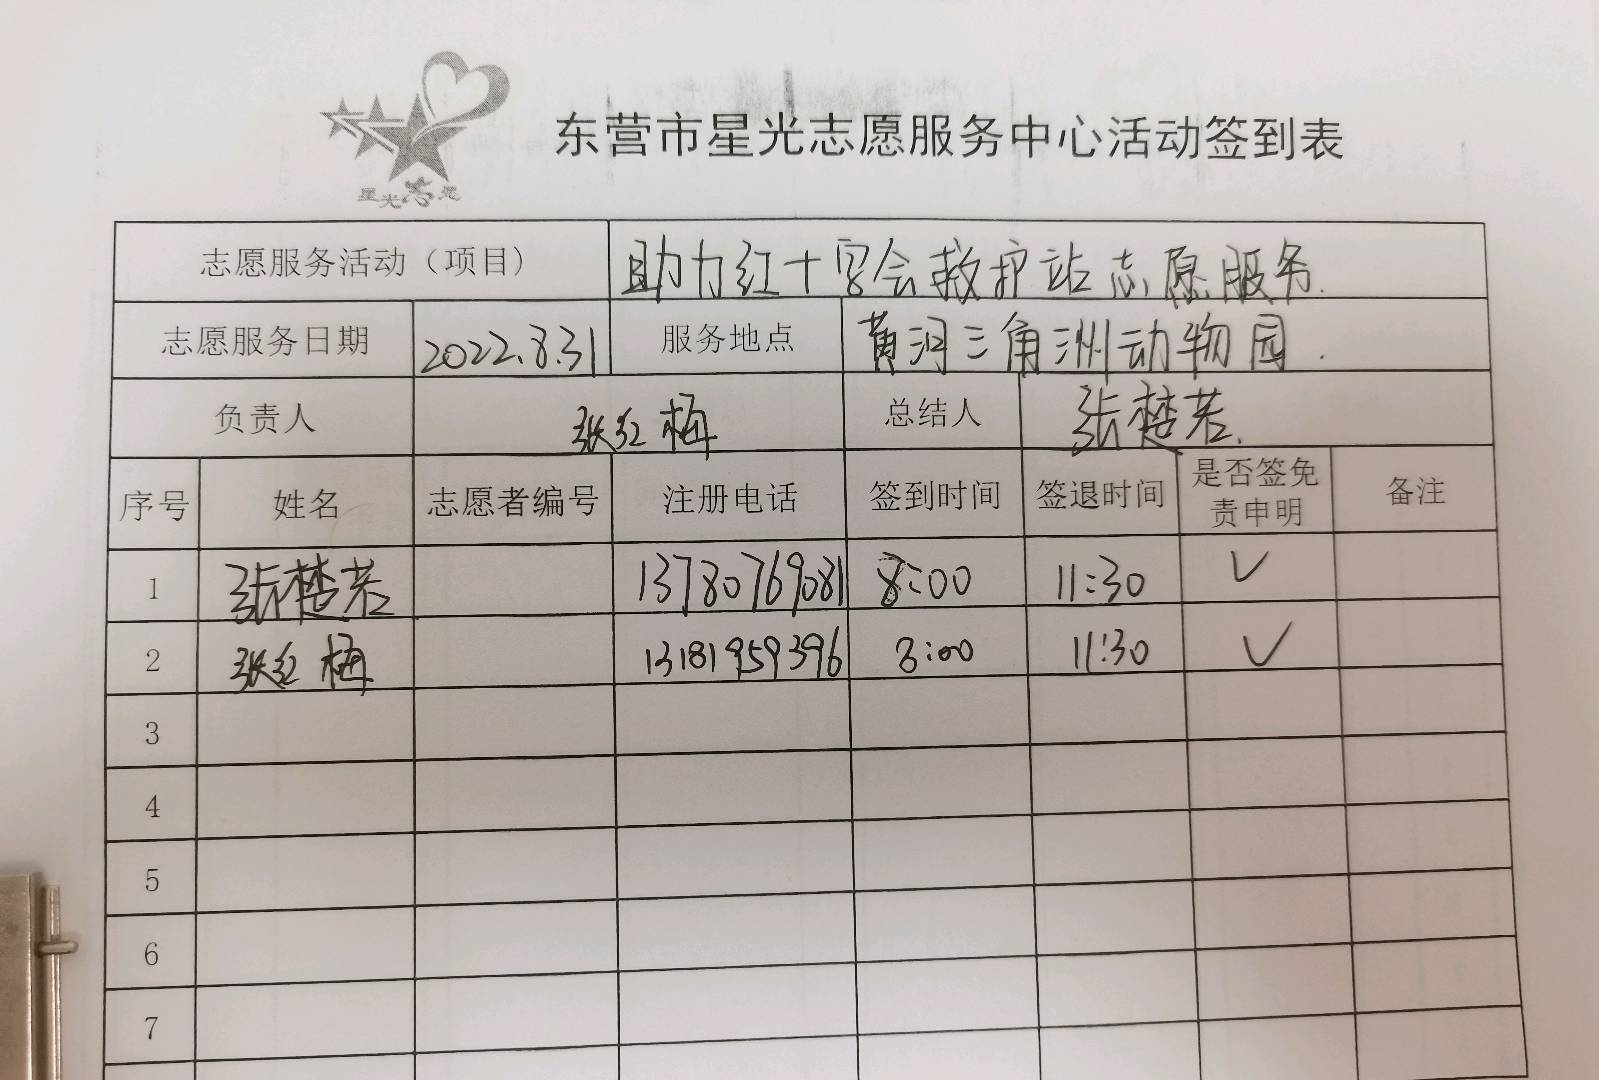 星光志愿
东营市星光志愿服务中心活动签到表
志愿服务活动（项目） 助力红十字会救护站志愿服务.
志愿服务日期 2022.8.31 服务地点 黄河三角洲动物园.
负责人 张红梅 总结人 张楚若.
序号 姓名 志愿者编号 注册电话 签到时间 签退时间 是否签免责申明 备注
1 张楚若 13780769081 8:00 11:30 ✓
2 张红梅 13181959396 8:00 11:30 ✓
3
4
5
6
7